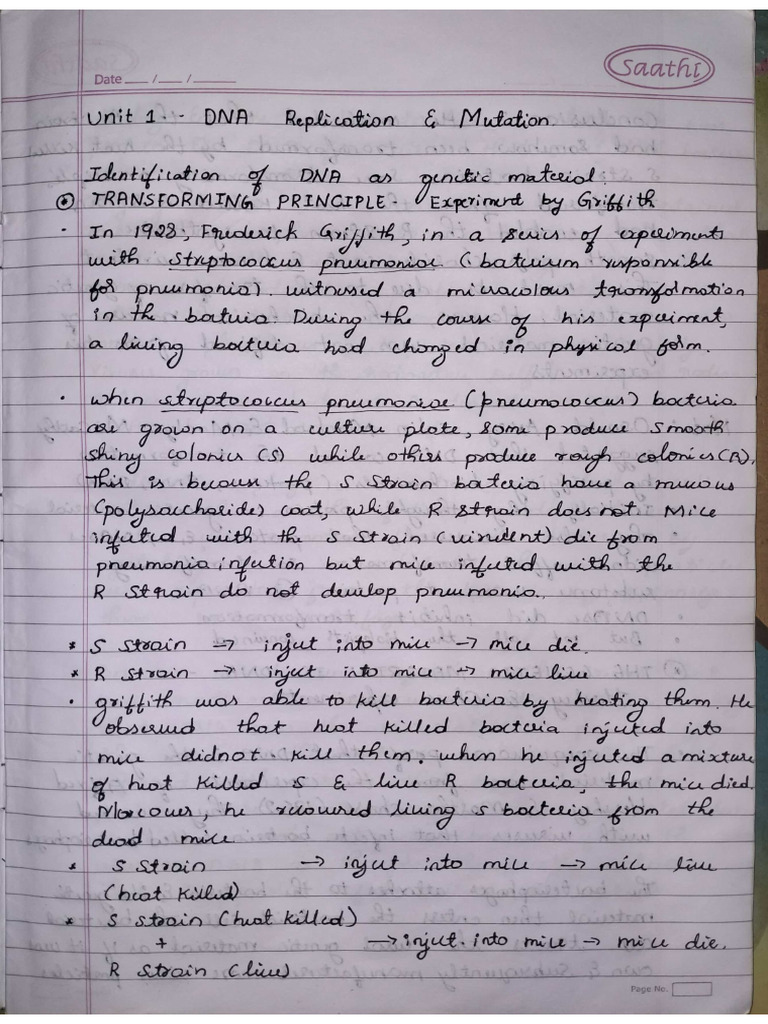 Saathi
Date ___ /___ /_____
Unit 1 :- DNA Replication & Mutation.
Identification of DNA as genetic material.
TRANSFORMING PRINCIPLE - Experiment by Griffith
· In 1928, Frederick Griffith, in a series of experiments
with Streptococcus pneumoniae (bacterium responsible
for pneumonia) witnessed a miraculous transformation
in the bacteria. During the course of his experiment,
a living bacteria had changed in physical form.
· when streptococcus pneumoniae (pneumococcus) bacteria
are grown on a culture plate, some produce smooth
shiny colonies (S) while others produce rough colonies (R).
This is because the S strain bacteria have a mucous
(polysaccharide) coat, while R strain does not Mice
infected with the S strain (virulent) die from
pneumonia infection but mice infected with the
R strain do not develop pneumonia.
* S strain → inject into mice → mice die.
* R strain → inject into mice → mice live
· griffith was able to kill bacteria by heating them. He
observed that heat killed bacteria injected into
mice didnot kill them. when he injected a mixture
of heat killed S & live R bacteria, the mice died.
Moreover, he recovered living S bacteria from the
dead mice
* S strain → inject into mice → mice live
(heat killed)
* S strain (heat killed)
+ → inject into mice → mice die.
R strain (live)
Page No.